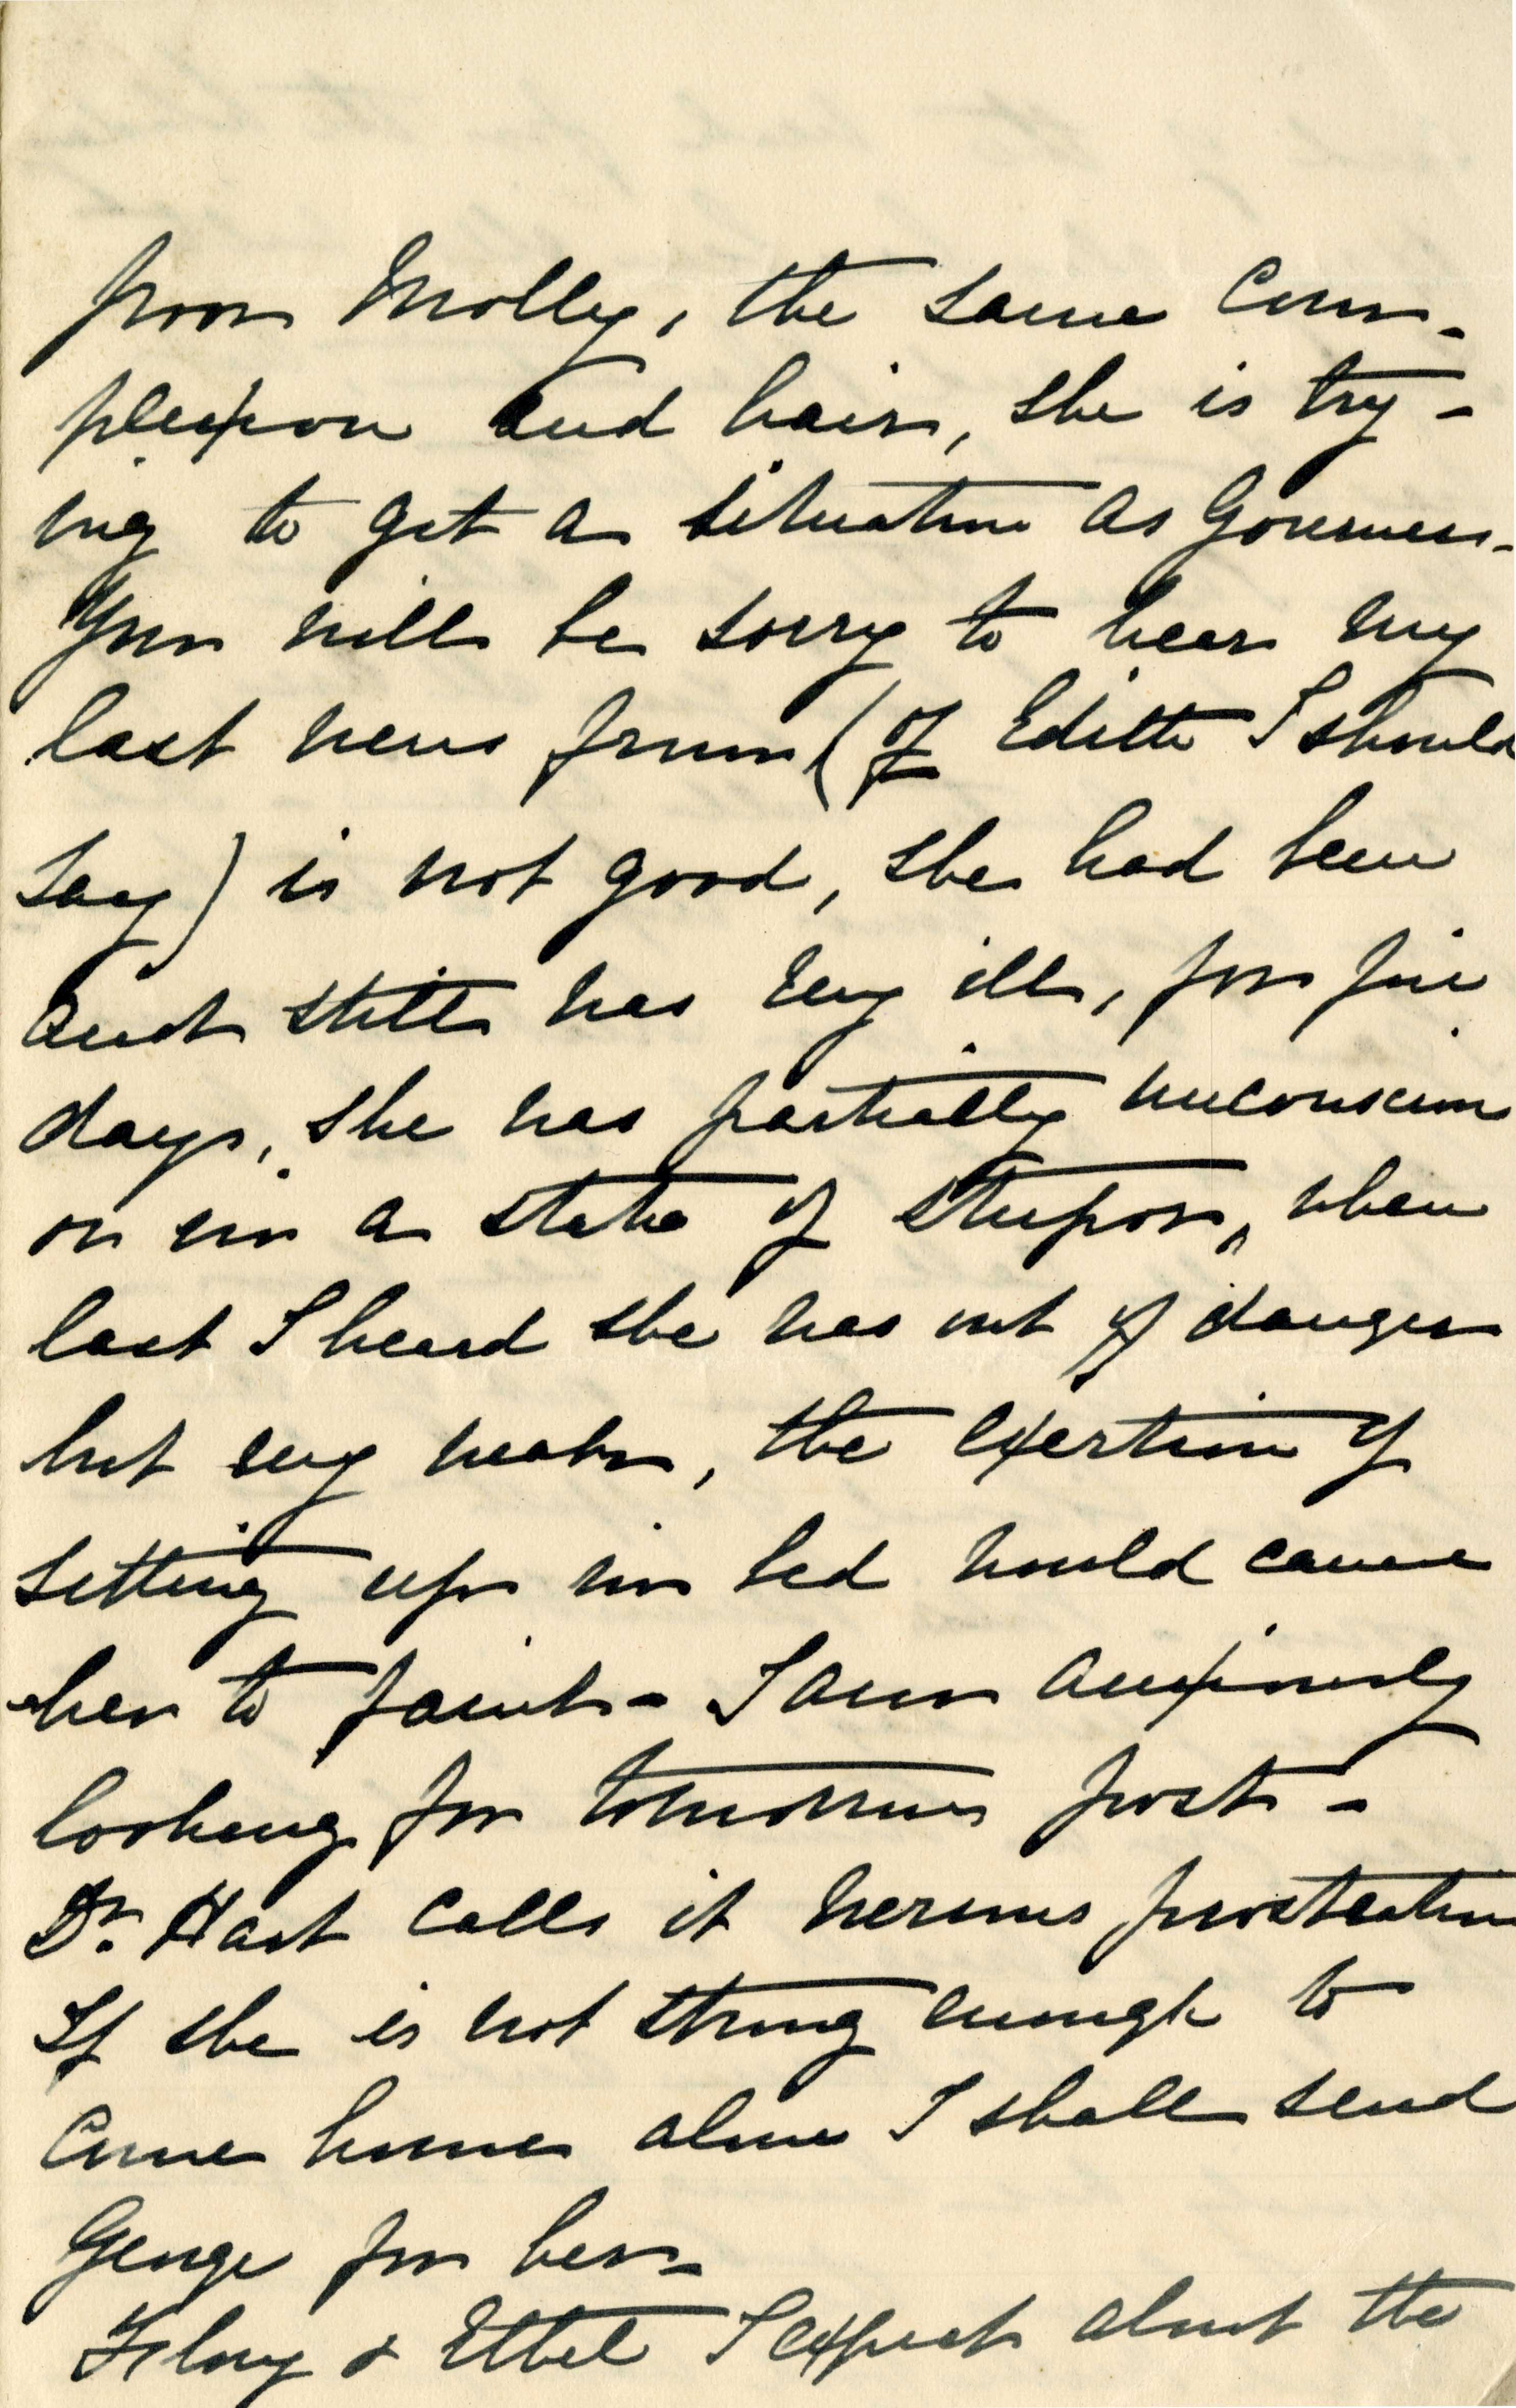 poor Molly, the same com-
plexion and hair, she is try-
ing to get a situation as Governess.
You will be sorry to hear my
last news from (of Edith I should
say) is not good, she had been
and still was very ill, for five
days, she was partially unconscious
or in a state of stupor, when
last I heard she was out of danger
but very weak, the exertion of
sitting up in bed would cause
her to faint - I am anxiously
looking for tomorrows post -
Dr. Hart calls it nervous prostration
If she is not strong enough to
come home alone I shall send
George for her -
& Ethel I expect about the